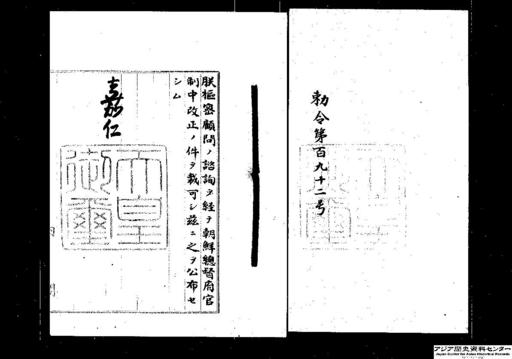 勅令第百九十二号
朕枢密顧問ノ諮詢ヲ経テ朝鮮総督府官
制中改正ノ件ヲ裁可シ茲ニ之ヲ公布セ
シム
嘉仁
天皇
御璽
アジア歴史資料センター
Japan Center for Asian Historical Records